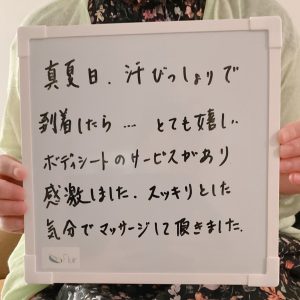 真夏日、汗びっしょりで
到着したら… とても嬉しい
ボディシートのサービスがあり
感激しました。スッキリとした
気分でマッサージして頂きました。